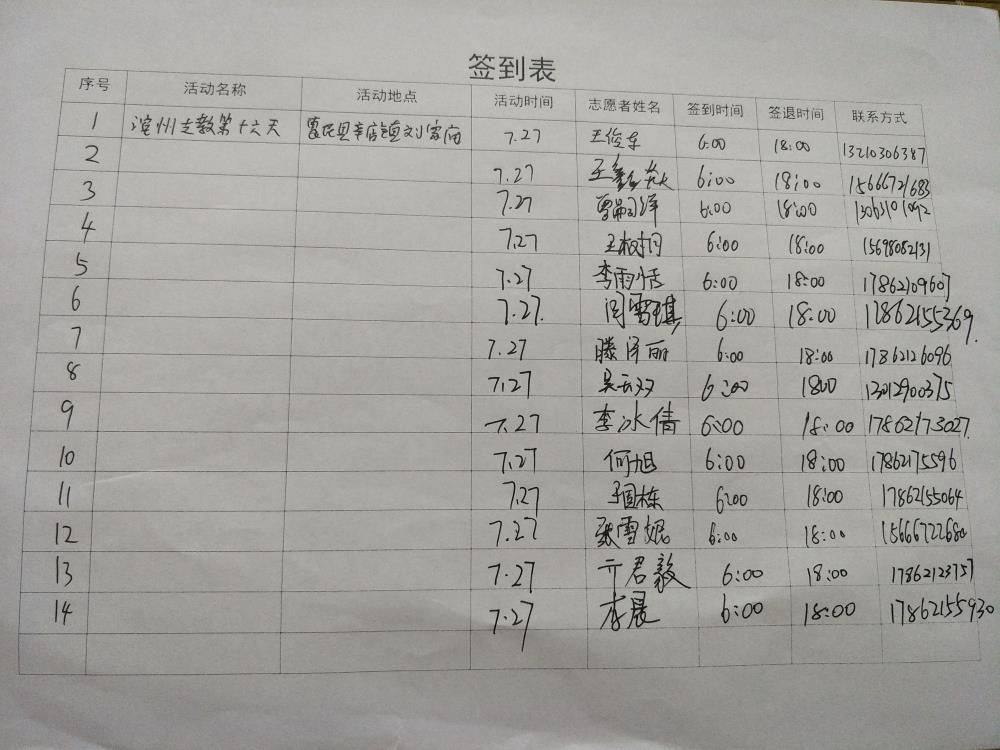 签到表
序号 活动名称 活动地点 活动时间 志愿者姓名 签到时间 签退时间 联系方式
1 滨州支教第十六天 曹店镇刘家庙 7.27 王俊东 6:00 18:00 13210306387
2 7.27 王 6:00 18:00 15666721683
3 7.27 6:00 18:00 13063101092
4 7.27 王树月 6:00 18:00 15698082131
5 7.27 李雨恬 6:00 18:00 17862109607
6 7.27. 闫雪琪 6:00 18:00 17862155369.
7 7.27 滕泽丽 6:00 18:00 17862126096
8 7.27 吴云双 6:00 1800 13012900375
9 7.27 李冰倩 6:00 18:00 17862173027.
10 7.27 何旭 6:00 18:00 17862175596
11 7.27 王国栋 6:00 18:00 17862155064
12 7.27 张雪妮 6:00 18:00 15666722680
13 7.27 亓君毅 6:00 18:00 17862123757
14 7.27 李晨 6:00 18:00 17862155930